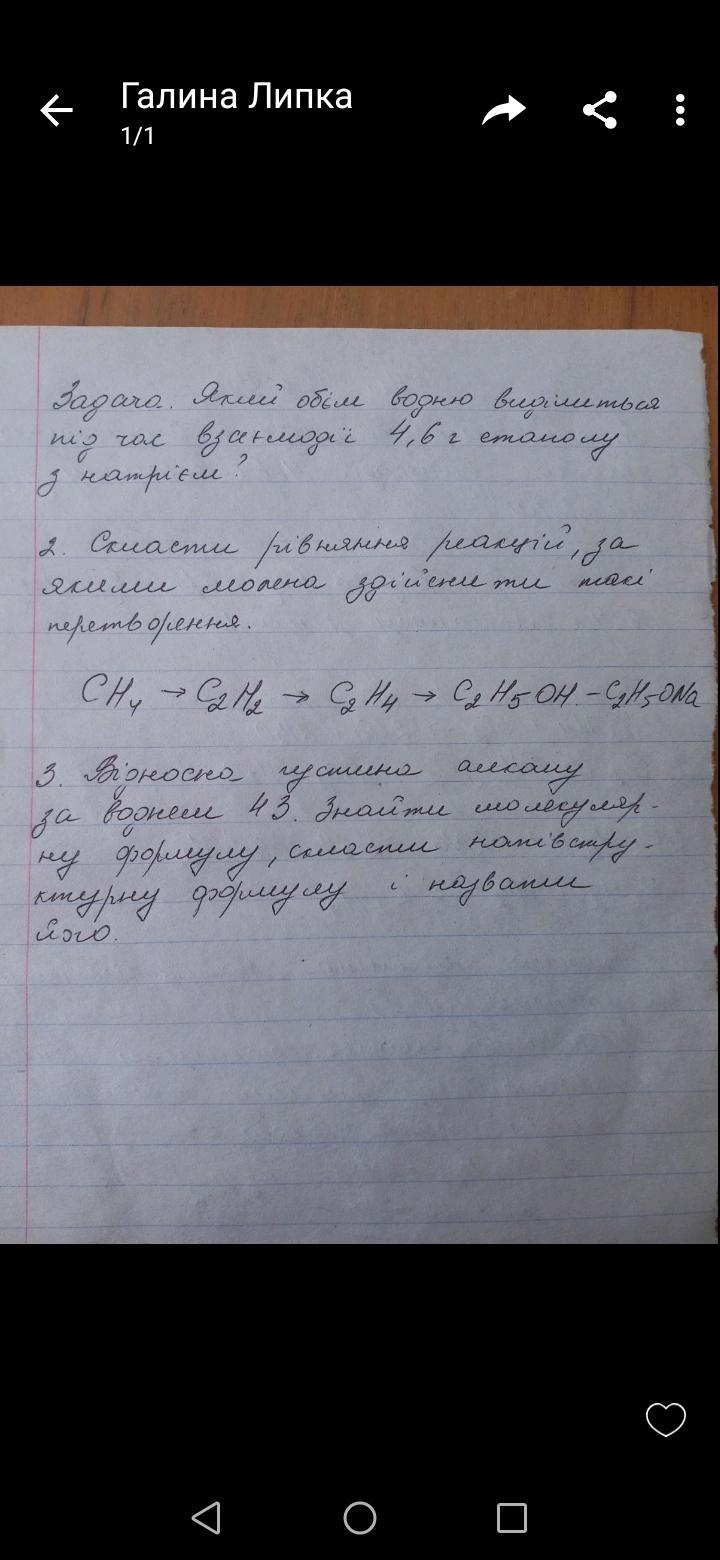 Галина Липка
1/1
Задача. Який обєм водню виділиться
під час взаємодії 4,6 г етанолу
з натрієм?
2. Скласти рівняння реакцій, за
якими можна здійснити такі
перетворення.
CH₄ → C₂H₂ → C₂H₄ → C₂H₅OH. – C₂H₅ONa
3. Відносна густина алкану
за воднем 43. Знайти молекуляр-
ну формулу, скласти напівстру-
ктурну формулу і назвати
його.